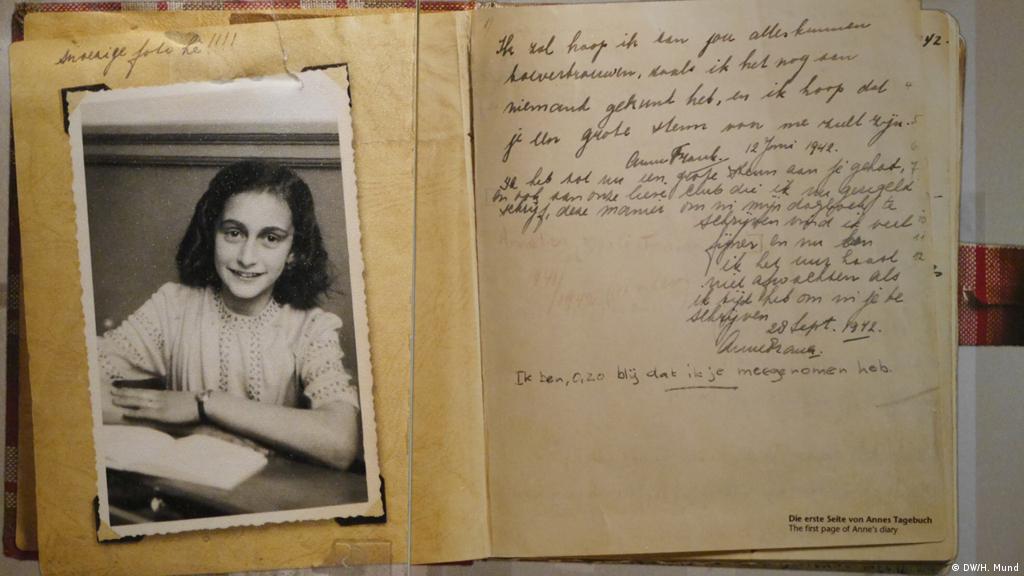 snoezige foto hè!!!!
Ik zal hoop ik aan jou alles kunnen
toevertrouwen, zoals ik het nog aan
niemand gekund heb, en ik hoop dat
je een grote steun voor me zult zijn.
Anne Frank. 12 Juni 1942.
Ik heb tot nu een grote steun aan je gehad,
en ook aan onze lieve club die ik nu geregeld
schrijf, deze manier om in mijn dagboek te
schrijven vind ik veel
fijner en nu
ik het uur haast
niet afwachten als
ik tijd heb om in je te
schrijven
28 Sept. 1942.
Anne Frank.
Ik ben, o, zo blij dat ik je meegenomen heb.
42.
Die erste Seite von Annes Tagebuch
The first page of Anne's diary
© DW/H. Mund